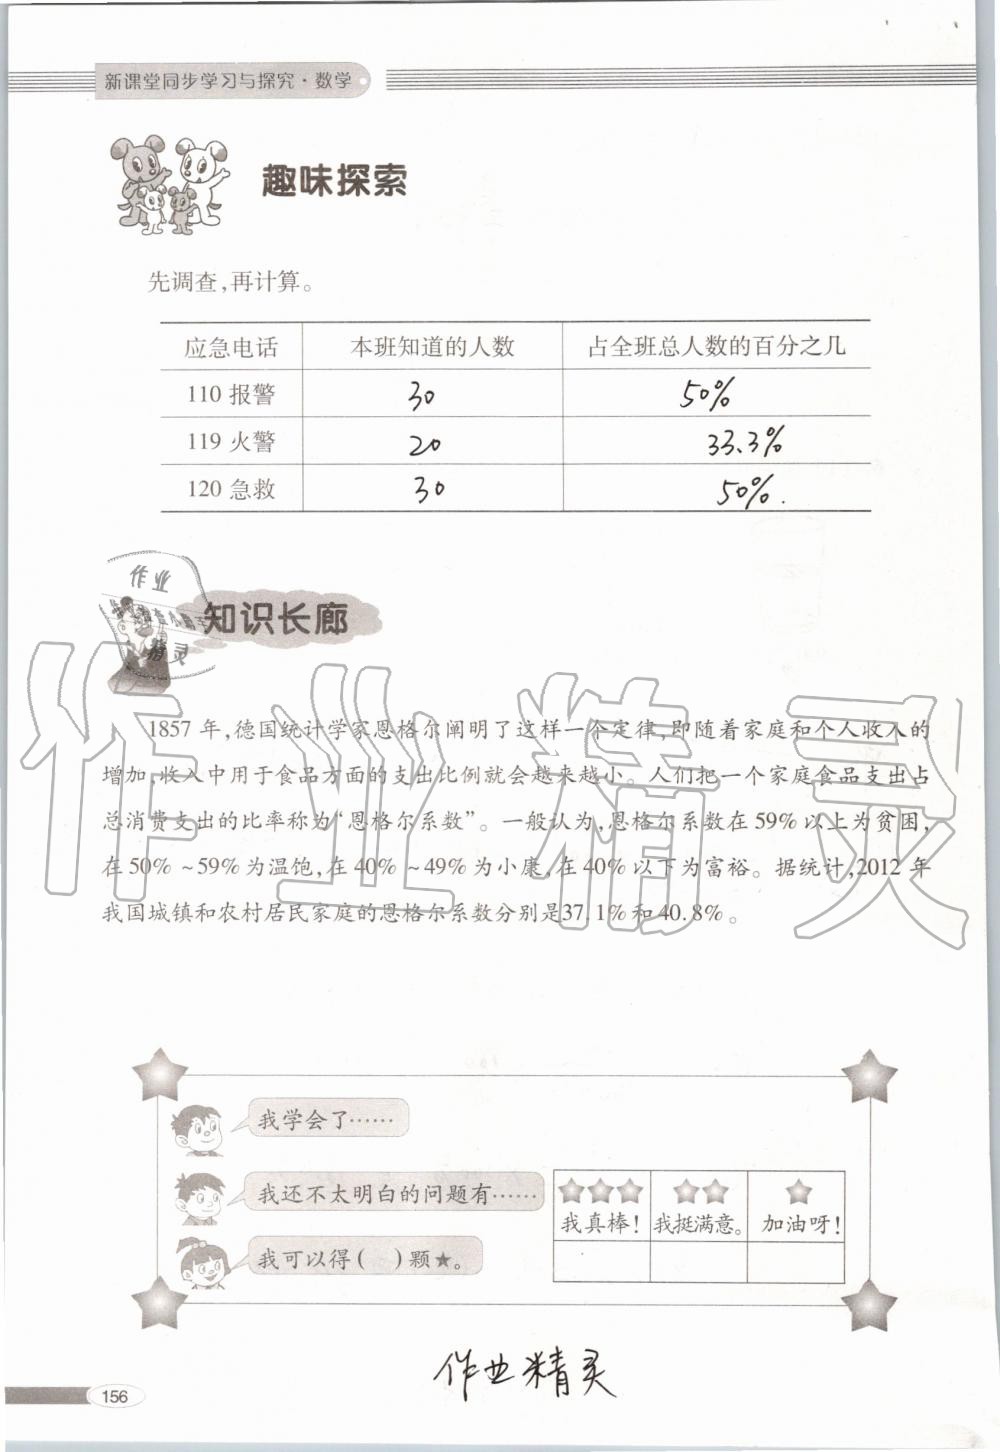 新课堂同步学习与探究·数学
趣味探索
先调查,再计算。
应急电话 本班知道的人数 占全班总人数的百分之几
110 报警 30 50%
119 火警 20 33.3%
120 急救 30 50%.
作业
精灵
知识长廊
1857 年,德国统计学家恩格尔阐明了这样一个定律,即随着家庭和个人收入的
增加,收入中用于食品方面的支出比例就会越来越小。人们把一个家庭食品支出占
总消费支出的比率称为“恩格尔系数”。一般认为,恩格尔系数在 59% 以上为贫困,
在 50% ~59% 为温饱,在 40% ~49% 为小康,在 40% 以下为富裕。据统计,2012 年
我国城镇和农村居民家庭的恩格尔系数分别是37.1% 和 40.8% 。
作业精灵
我学会了……
我还不太明白的问题有……
我可以得( )颗★。
我真棒! 我挺满意。 加油呀!
作业精灵
156